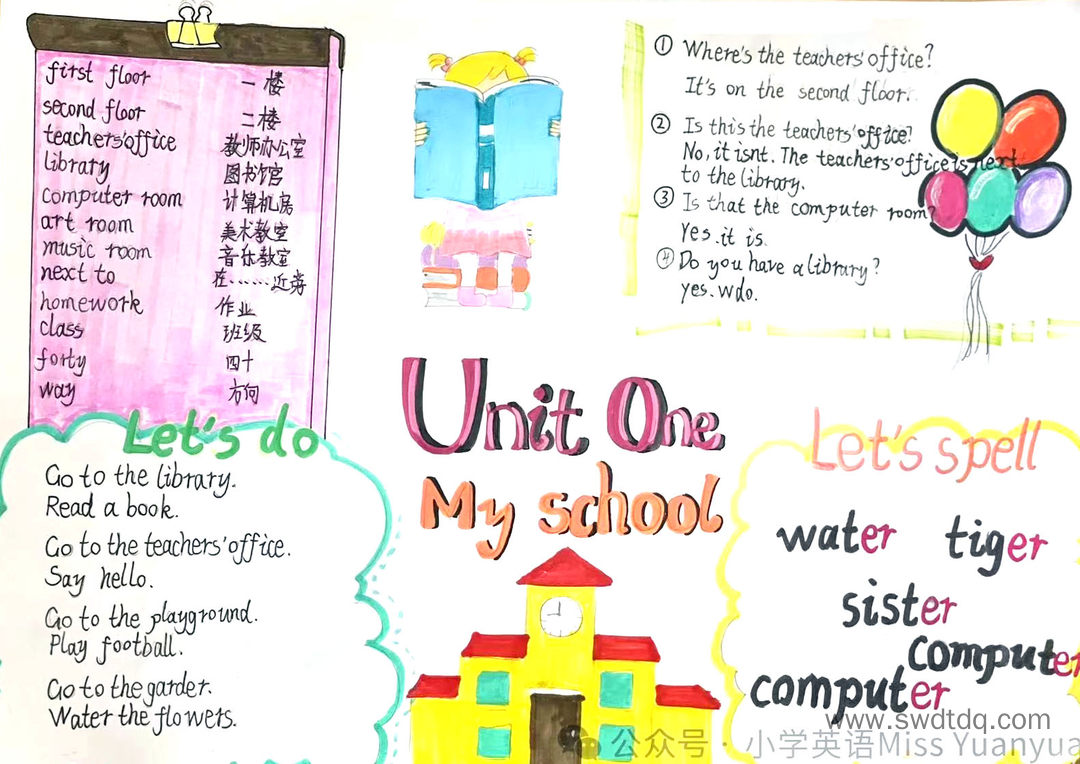 first floor 一楼
second floor 二楼
teachers'office 教师办公室
library 图书馆
computer room 计算机房
art room 美术教室
music room 音乐教室
next to 在……近旁
homework 作业
class 班级
forty 四十
way 方向
① Where's the teachers' office?
It's on the second floor.
② Is this the teachers' office?
No, it isnt. The teachers' office is next
to the library.
③ Is that the computer room?
Yes. it is.
④ Do you have a library?
yes. wdo.
Unit One
My school
Let's do
Go to the library.
Read a book.
Go to the teachers' office.
Say hello.
Go to the playground.
Play football.
Go to the garder.
Water the flowers.
Let's spell
water tiger
sister
computer
computer
www.swdtdq.com
公众号 · 小学英语Miss Yuanyua